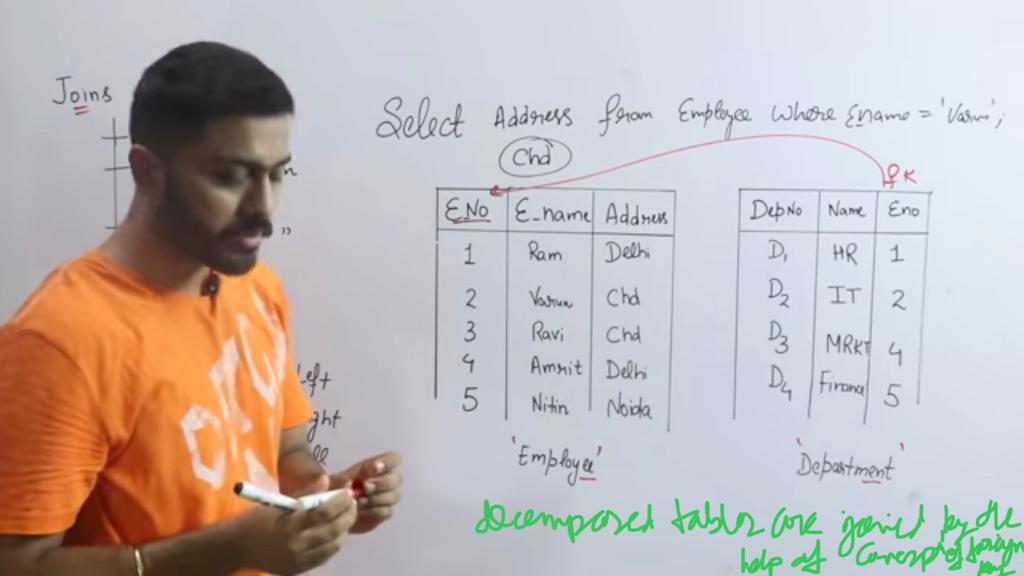 Joins
Select Address from Employee Where Ename = 'Varun';
Chd
fK
E.No E_name Address
1 Ram Delhi
2 Varun Chd
3 Ravi Chd
4 Amrit Delhi
5 Nitin Noida
'Employee'
DepNo Name Eno
D1 HR 1
D2 IT 2
D3 MRKT 4
D4 Finance 5
'Department'
decomposed tables are joined by the
help of